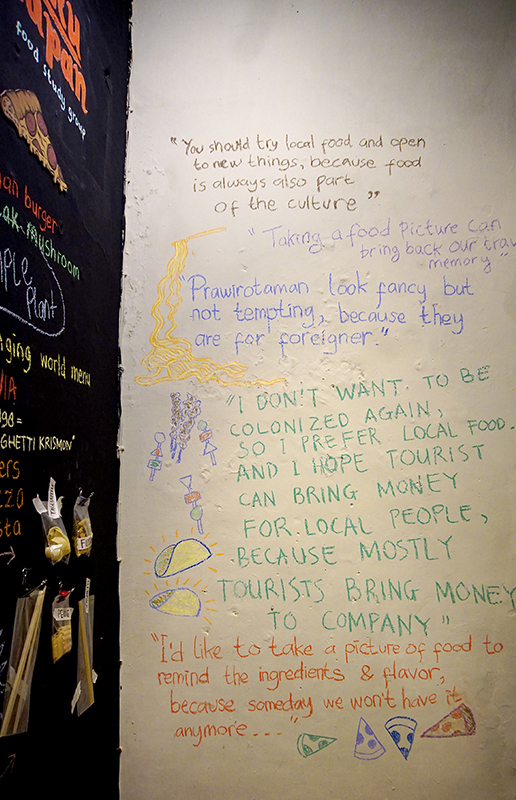 food study group
burger
mushroom
Plant
world menu
"You should try local food and open
to new things, because food
is always also part
of the culture"
"Taking a food picture can
bring back our
memory"
"Prawirotaman look fancy but
not tempting, because they
are for foreigner."
"I DON'T WANT TO BE
COLONIZED AGAIN,
SO I PREFER LOCAL FOOD.
AND I HOPE TOURIST
CAN BRING MONEY
FOR LOCAL PEOPLE,
BECAUSE MOSTLY
TOURISTS BRING MONEY
TO COMPANY"
"I'd like to take a picture of food to
remind the ingredients & flavor,
because someday we won't have it
anymore...."